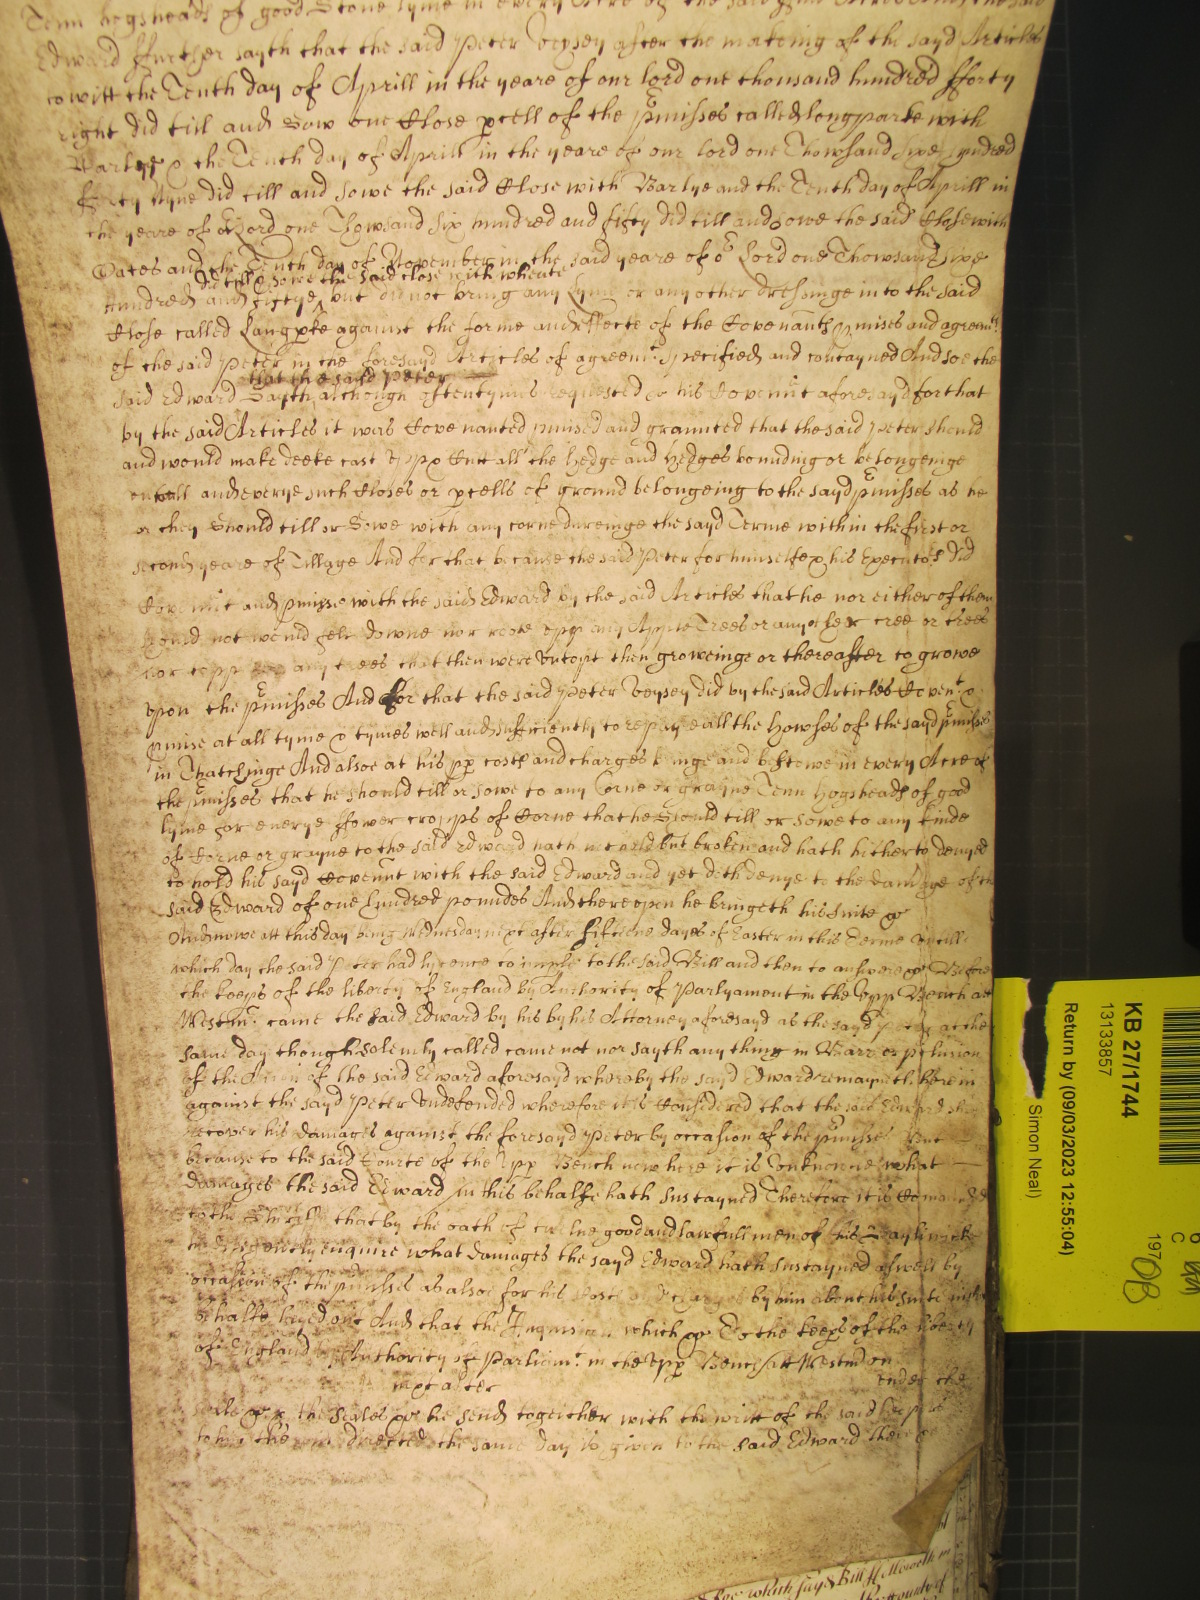 Tenn hogsheads of good Stone lyme in every Acre of the said
Edward ffurther sayth that the said Peter Veysey after the makeing of the sayd Articles
to witt the Tenth day of Aprill in the yeare of our lord one thousand hundred fforty
eight did till and Sow one Close pcell of the pmisses called longparke with
Barlye & the Tenth day of Aprill in the yeare of our lord one Thowsand Six hundred
forty Nyne did till and sowe the said Close with Barlye and the Tenth day of Aprill in
the yeare of or Lord one Thowsand Six hundred and fifty did till and sowe the said Close with
Oates and the Tenth day of November in the said yeare of or Lord one Thowsand
did till & sowe the said close with wheate
hundred and fiftye but did not bring any lyme or any other dressinge in to the said
Close called Langpke against the forme and effecte of the Covenants pmises and agreemts
of the said Peter in the foresayd Articles of agreemt specified and contayned And soe the
that the said Peter
said Edward Sayth although oftentymes requested his Covennt aforesayd for that
by the said Articles it was Covenanted pmised and graunted that the said Peter should
and would make deeke cast upp & Cutt all the hedge and hedges bounding or belongeinge
unto all and everye such Closes or pcells of ground belongeing to the sayd pmisses as he
or they Should till or Sowe with any corne dureinge the sayd Terme within the first or
second yeare of Tillage And for that because the said Peter for himselfe & his Executors did
Covennt and pmisse with the said Edward by the said Articles that he nor either of them
should not would fell downe nor roote upp any Apple Trees or any other tree or trees
nor topp any trees that then were untopt then groweinge or thereafter to growe
upon the pmisses And for that the said Peter Veysey did by the said Articles Covent &
pmise at all tyme & tymes well and sufficiently to repayre all the howses of the sayd pmisses
in Thatchinge And alsoe at his pp costs and charges bringe and bestowe in every Acre of
the pmisses that he should till or sowe to any Corne or grayne Tenn hogsheads of good
lyme for everye ffower cropps of Corne that he Should till or sowe to any kinde
of Corne or grayne to the said Edward hath not held but broken and hath hitherto denyed
to hold his sayd Covennt with the said Edward and yet doth denye to the damage of the
said Edward of one hundred poundes And thereupon he bringeth his suite &c
And nowe att this day being Wednesday next after fifteene dayes of Easter in this Terme untill
which day the said Peter had lycence to imple to the said Bill and then to answere &c Before
the keeps of the liberty of England by Authority of Parlyament in the Upp Bench att
Westmr came the said Edward by his by his Attorney aforesayd as the sayd Peter at the
same day though solemly called came not nor sayth any thing in Barr or
of the Accon of the said Edward aforesayd whereby the sayd Edward remayneth here in
against the sayd Peter undefended wherefore it is Considered that the said Edward
recover his damages against the foresayd Peter by occasion of the pmisses But
because to the said Courte of the Upp Bench now here it is unknowne what
damages the said Edward in this behalfe hath sustayned Therefore it is Comanded
to the Sheriffe that by the oath of twelve good and lawfull men of his Baylwicke
inquire what damages the sayd Edward hath sustayned aswell by
occasion of the pmisses as alsoe for his Costs and charges by him about his suite in this
behalfe layed out And that the Inquisicon which &c To the keeps of the liberty
of England by Authority of Parliamt in the Upp Bench att Westmr on
next after under the
seale &c & the seales &c he send together with the writt of the said keeps
to him thereof directed the same day is given to the said Edward there &c
the which sayd Bill
KB 27/1744
1313857
Return by (09/03/2023 12:55:04)
Simon Neal)